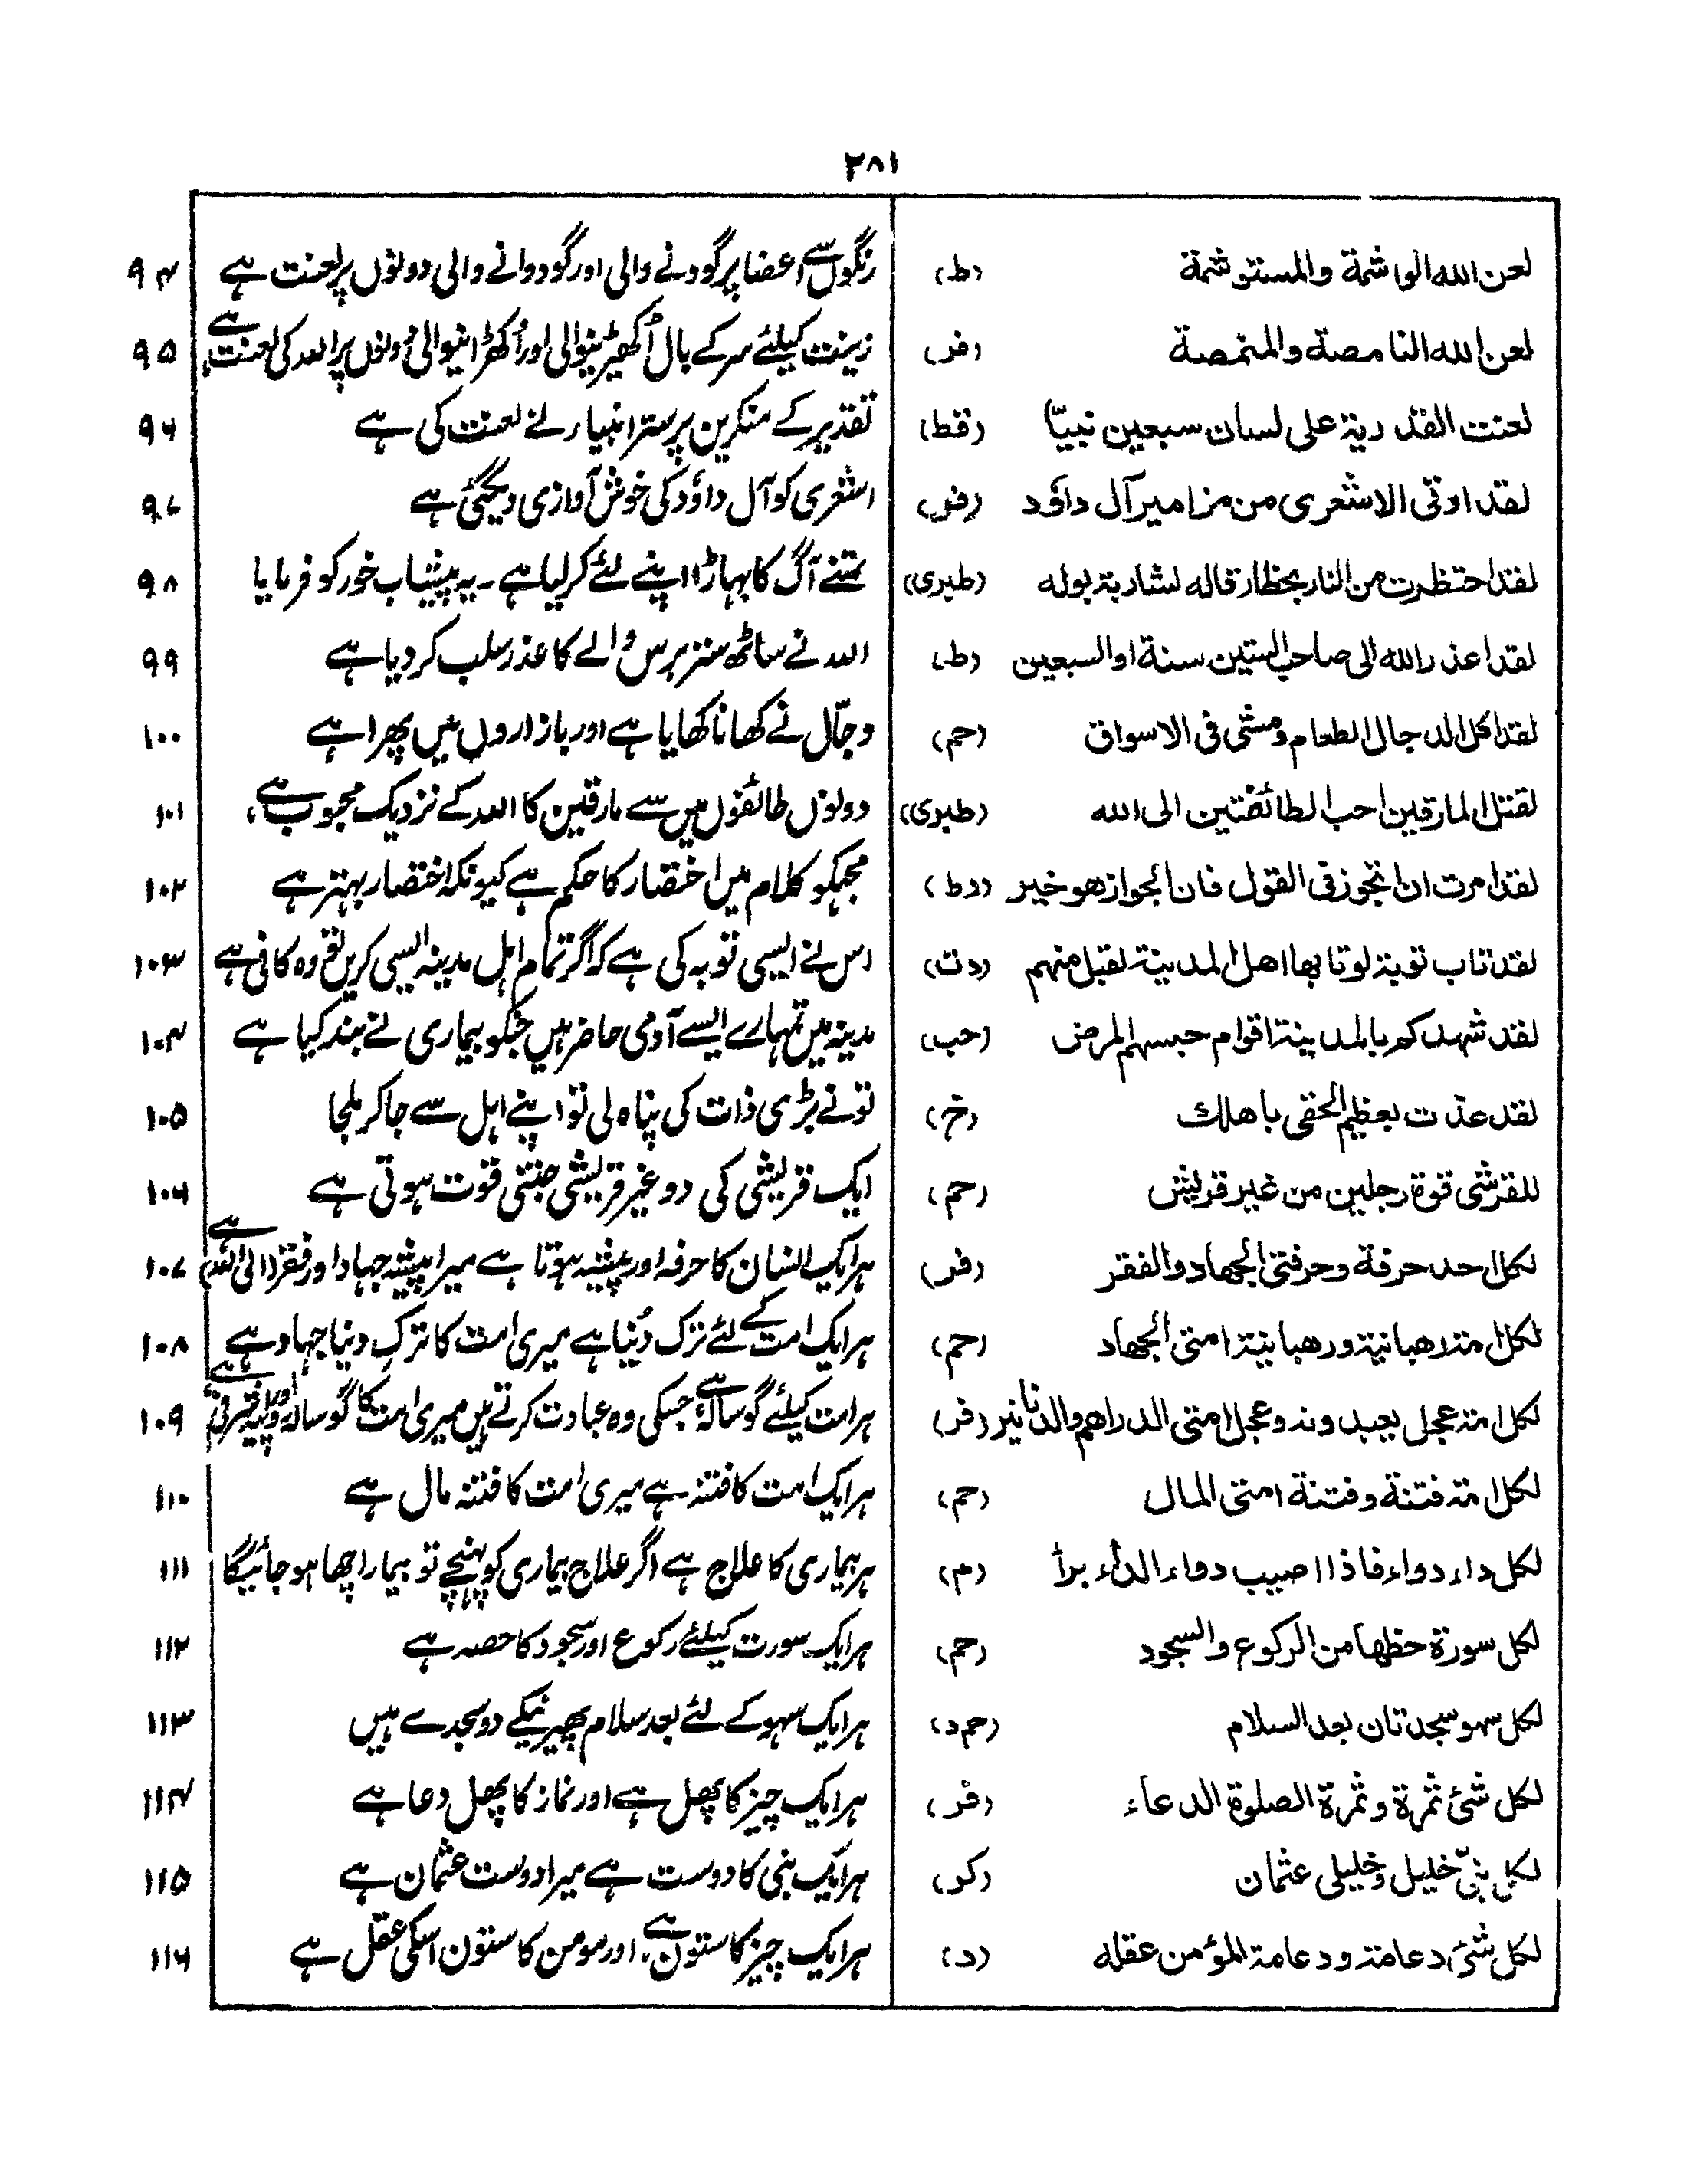 ٢٨١
لعن الله الواشمة والمستوشمة (ط) رنگوں سے اعضا پر گودنے والی اور گودوانے والی دونوں پر لعنت ہے ٩٤
لعن الله النامصة والمتنمصة (فر) زینت کیلئے سر کے بال اُکھیڑنیوالی اور اُکھڑانیوالی دونوں پر اللہ کی لعنت ہے ٩٥
لعنت القدرية على لسان سبعين نبيّا (قط) تقدیر کے منکرین پر ستر انبیاء نے لعنت کی ہے ٩٦
لقد اوتى الاشعرى من مزامير آل داؤد (فر) اشعری کو آل داؤد کی خوش آوازی دیگئی ہے ٩٧
لقد احتظرت من النار بحظار قاله لشاربة بوله (طبرى) تمنے آگ کا پہاڑا اپنے لئے کر لیا ہے ۔ یہ پیشاب خور کو فرمایا ٩٨
لقد اعذر الله الى صاحب الستين سنة او السبعين (ط) اللہ نے ساٹھ ستر برس والے کا عذر سلب کر دیا ہے ٩٩
لقد اكل الدجال الطعام ومشى فى الاسواق (حم) دجّال نے کھانا کھایا ہے اور بازاروں میں پھرا ہے ١٠٠
لقتل المارقين احب الطائفتين الى الله (طبرى) دونوں طائفوں میں سے مارقین کا اللہ کے نزدیک محبوب ہے، ١٠١
لقد امرت ان اتجوز فى القول فان الجواز هو خير (دط) مجہکو کلام میں اختصار کا حکم ہے کیونکہ اختصار بہتر ہے ١٠٢
لقد تاب توبة لو تابها اهل المدينة لقبل منهم (دت) اس نے ایسی توبہ کی ہے کہ اگر تمام اہل مدینہ ایسی کریں تو وہ کافی ہے ١٠٣
لقد شهدكم بالمدينة اقوام حبسهم المرض (حب) مدینہ میں تمہارے ایسے آدمی حاضر ہیں جنکو بیماری نے بند کیا ہے ١٠٤
لقد عذت بعظيم الحقى باهلك (خ) تو نے بڑی ذات کی پناہ لی تو اپنے اہل سے جا کر ملجا ١٠٥
للقرشى قوة رجلين من غير قريش (حم) ایک قریشی کی دو غیر قریشی جتنی قوت ہوتی ہے ١٠٦
لكل احد حرفة وحرفتى الجهاد والفقر (فر) ہر ایک انسان کا حرفہ اور پیشہ ہوتا ہے میرا پیشہ جہاد اور فقر (الی اللہ) ہے ١٠٧
لكل امة رهبانية ورهبانية امتى الجهاد (حم) ہر ایک امت کے لئے ترک دُنیا ہے میری امت کا ترکِ دنیا جہاد ہے ١٠٨
لكل امة عجل يعبدونه وعجل امتى الدراهم والدنانير (فر) ہر امت کیلئے گوسالہ ہے جسکی وہ عبادت کرتے ہیں میری امت کا گوسالہ روپیہ اور اشرفی ہے ١٠٩
لكل امة فتنة وفتنة امتى المال (حم) ہر ایک امت کا فتنہ ہے میری امت کا فتنہ مال ہے ١١٠
لكل داء دواء فاذا اصيب دواء الداء برأ (م) ہر بیماری کا علاج ہے اگر علاج بیماری کو پہنچے تو بیمار اچھا ہو جائیگا ١١١
لكل سورة حظها من الركوع والسجود (حم) ہر ایک سورت کیلئے رکوع اور سجود کا حصہ ہے ١١٢
لكل سهو سجدتان بعد السلام (حم د) ہر ایک سہو کے لئے بعد سلام پھیرنیکے دو سجدے ہیں ١١٣
لكل شئ ثمرة وثمرة الصلوة الدعاء (فر) ہر ایک چیز کا پھل ہے اور نماز کا پھل دعا ہے ١١٤
لكل نبىّ خليل وخليلى عثمان (كر) ہر ایک نبی کا دوست ہے میرا دوست عثمان ہے ١١٥
لكل شئ دعامة ودعامة المؤمن عقله (د) ہر ایک چیز کا ستون ہے، اور مومن کا ستون اسکی عقل ہے ١١٦